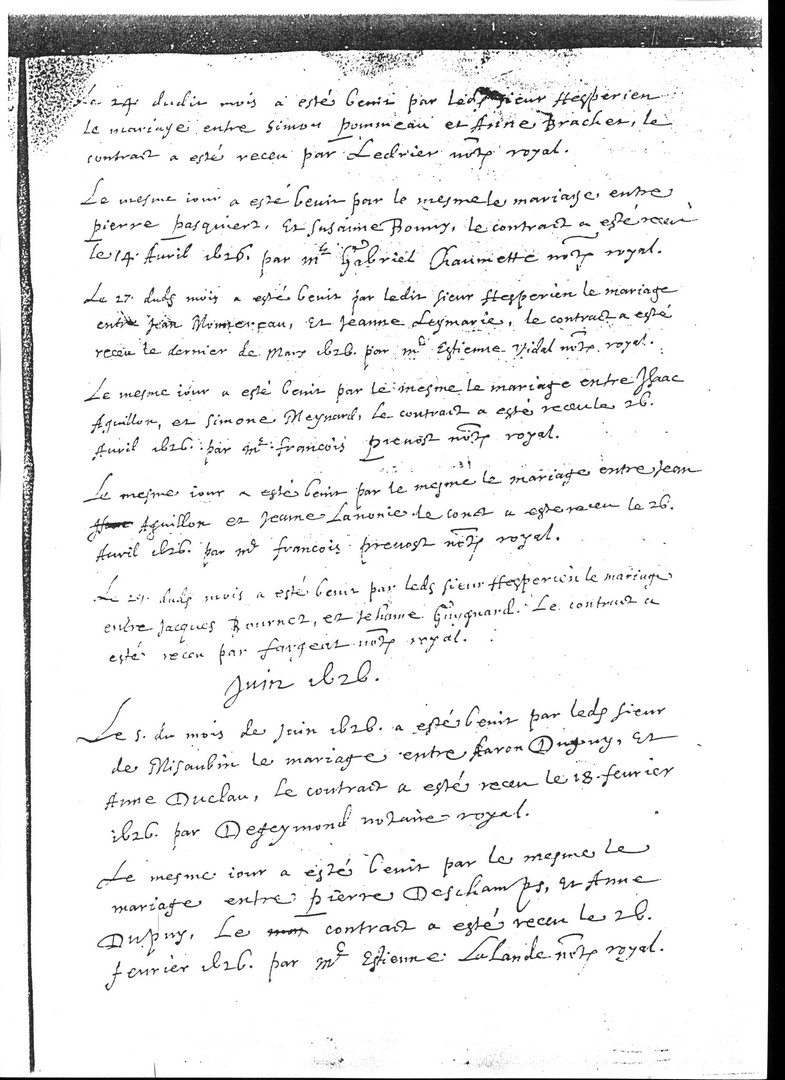 Le 24. dudit mois a esté benit par leds sieur Hesperien
le mariage entre Simon Pommeau et Anne Brachet, le
contract a esté receu par Ledrier notre royal.
Le mesme iour a esté benit par le mesme le mariage entre
pierre pasquiert, Et Susanne Bonny, le contract a esté receu
le 14. Auril 1626. par me Gabriel Chaumette notre royal.
Le 27. duds mois a esté benit par ledit sieur Hesperien le mariage
entre Jean Et Jeanne Leymarie, le contract a esté
receu le dernier de Mars 1626. par me Estienne Vidal notre royal.
Le mesme iour a esté benit par le mesme le mariage entre Isaac
Aguillon, et Simone Meynard, le contract a esté receu le 26.
Auril 1626. par me francois Prevost notre royal.
Le mesme iour a esté benit par le mesme le mariage entre Jean
Aguillon et Jeanne Lanonie le conct a esté receu le 26.
Auril 1626. par me francois prevost notre royal.
Le duds mois a esté benit par leds sieur Hesperien le mariage
entre Jacques Bournet, et Jehanne Guignard. Le contract a
esté receu par fargeat notre royal.
Juin 1626.
Le 5. du mois de Juin 1626. a esté benit par leds sieur
de Misaubin le mariage entre Aaron Dupuy, Et
Anne Duclau, Le contract a esté receu le 18. feurier
1626. par Degeymond notaire royal.
Le mesme iour a esté benit par le mesme le
mariage entre pierre Deschamps, Et Anne
Dupuy, Le contract a esté receu le 26.
feurier 1626. par me Estienne Lalande notre royal.